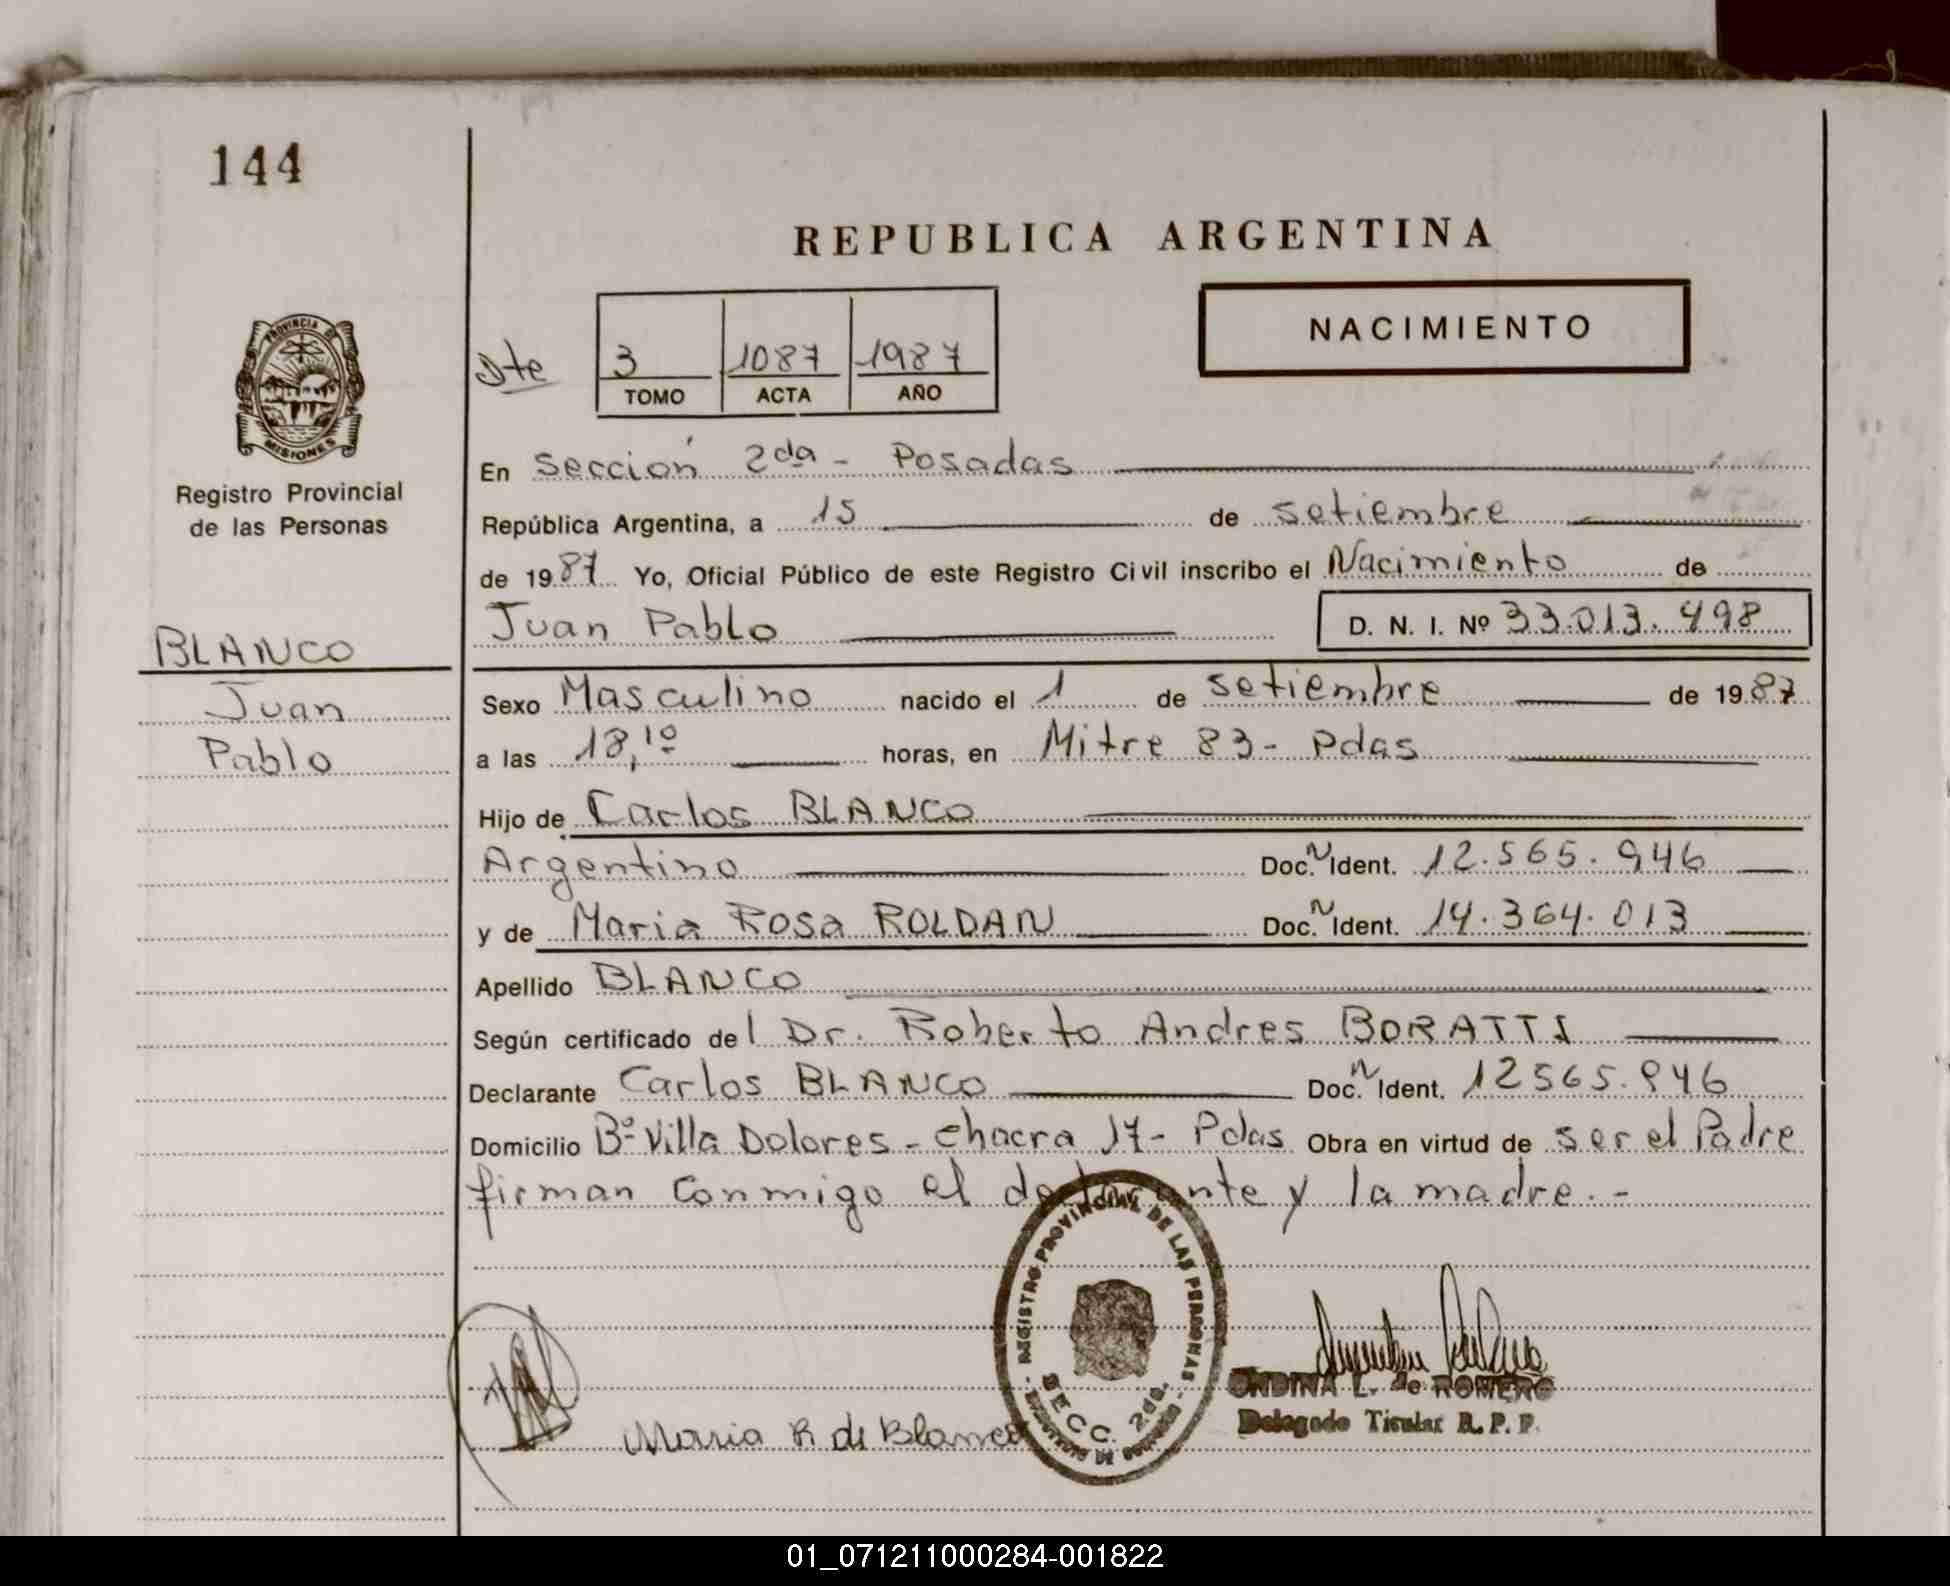 144
REPUBLICA ARGENTINA
NACIMIENTO
Dte
3 1087 1987
TOMO ACTA AÑO
PROVINCIA D
MISIONES
Registro Provincial
de las Personas
En Sección 2da - Posadas
República Argentina, a 15 de setiembre
de 1987 Yo, Oficial Público de este Registro Civil inscribo el Nacimiento de
Juan Pablo D. N. I. Nº 33.013.498
BLANCO
Juan
Pablo
Sexo Masculino nacido el 1 de setiembre de 1987
a las 18,10 horas, en Mitre 83 - Pdas
Hijo de Carlos BLANCO
Argentino Doc. Ident. 12.565.946
y de Maria Rosa ROLDAN Doc. Ident. 14.364.013
Apellido BLANCO
Según certificado del Dr. Roberto Andres BORATTI
Declarante Carlos BLANCO Doc. Ident. 12565.946
Domicilio Bº Villa Dolores - chacra 17 - Pdas Obra en virtud de ser el Padre
firman conmigo el declarante y la madre. -
REGISTRO PROVINCIAL DE LAS PERSONAS
SECC. 2da.
Maria R de Blanco
ONDINA L. de ROMERO
Delegado Titular R. P. P.
01_071211000284-001822